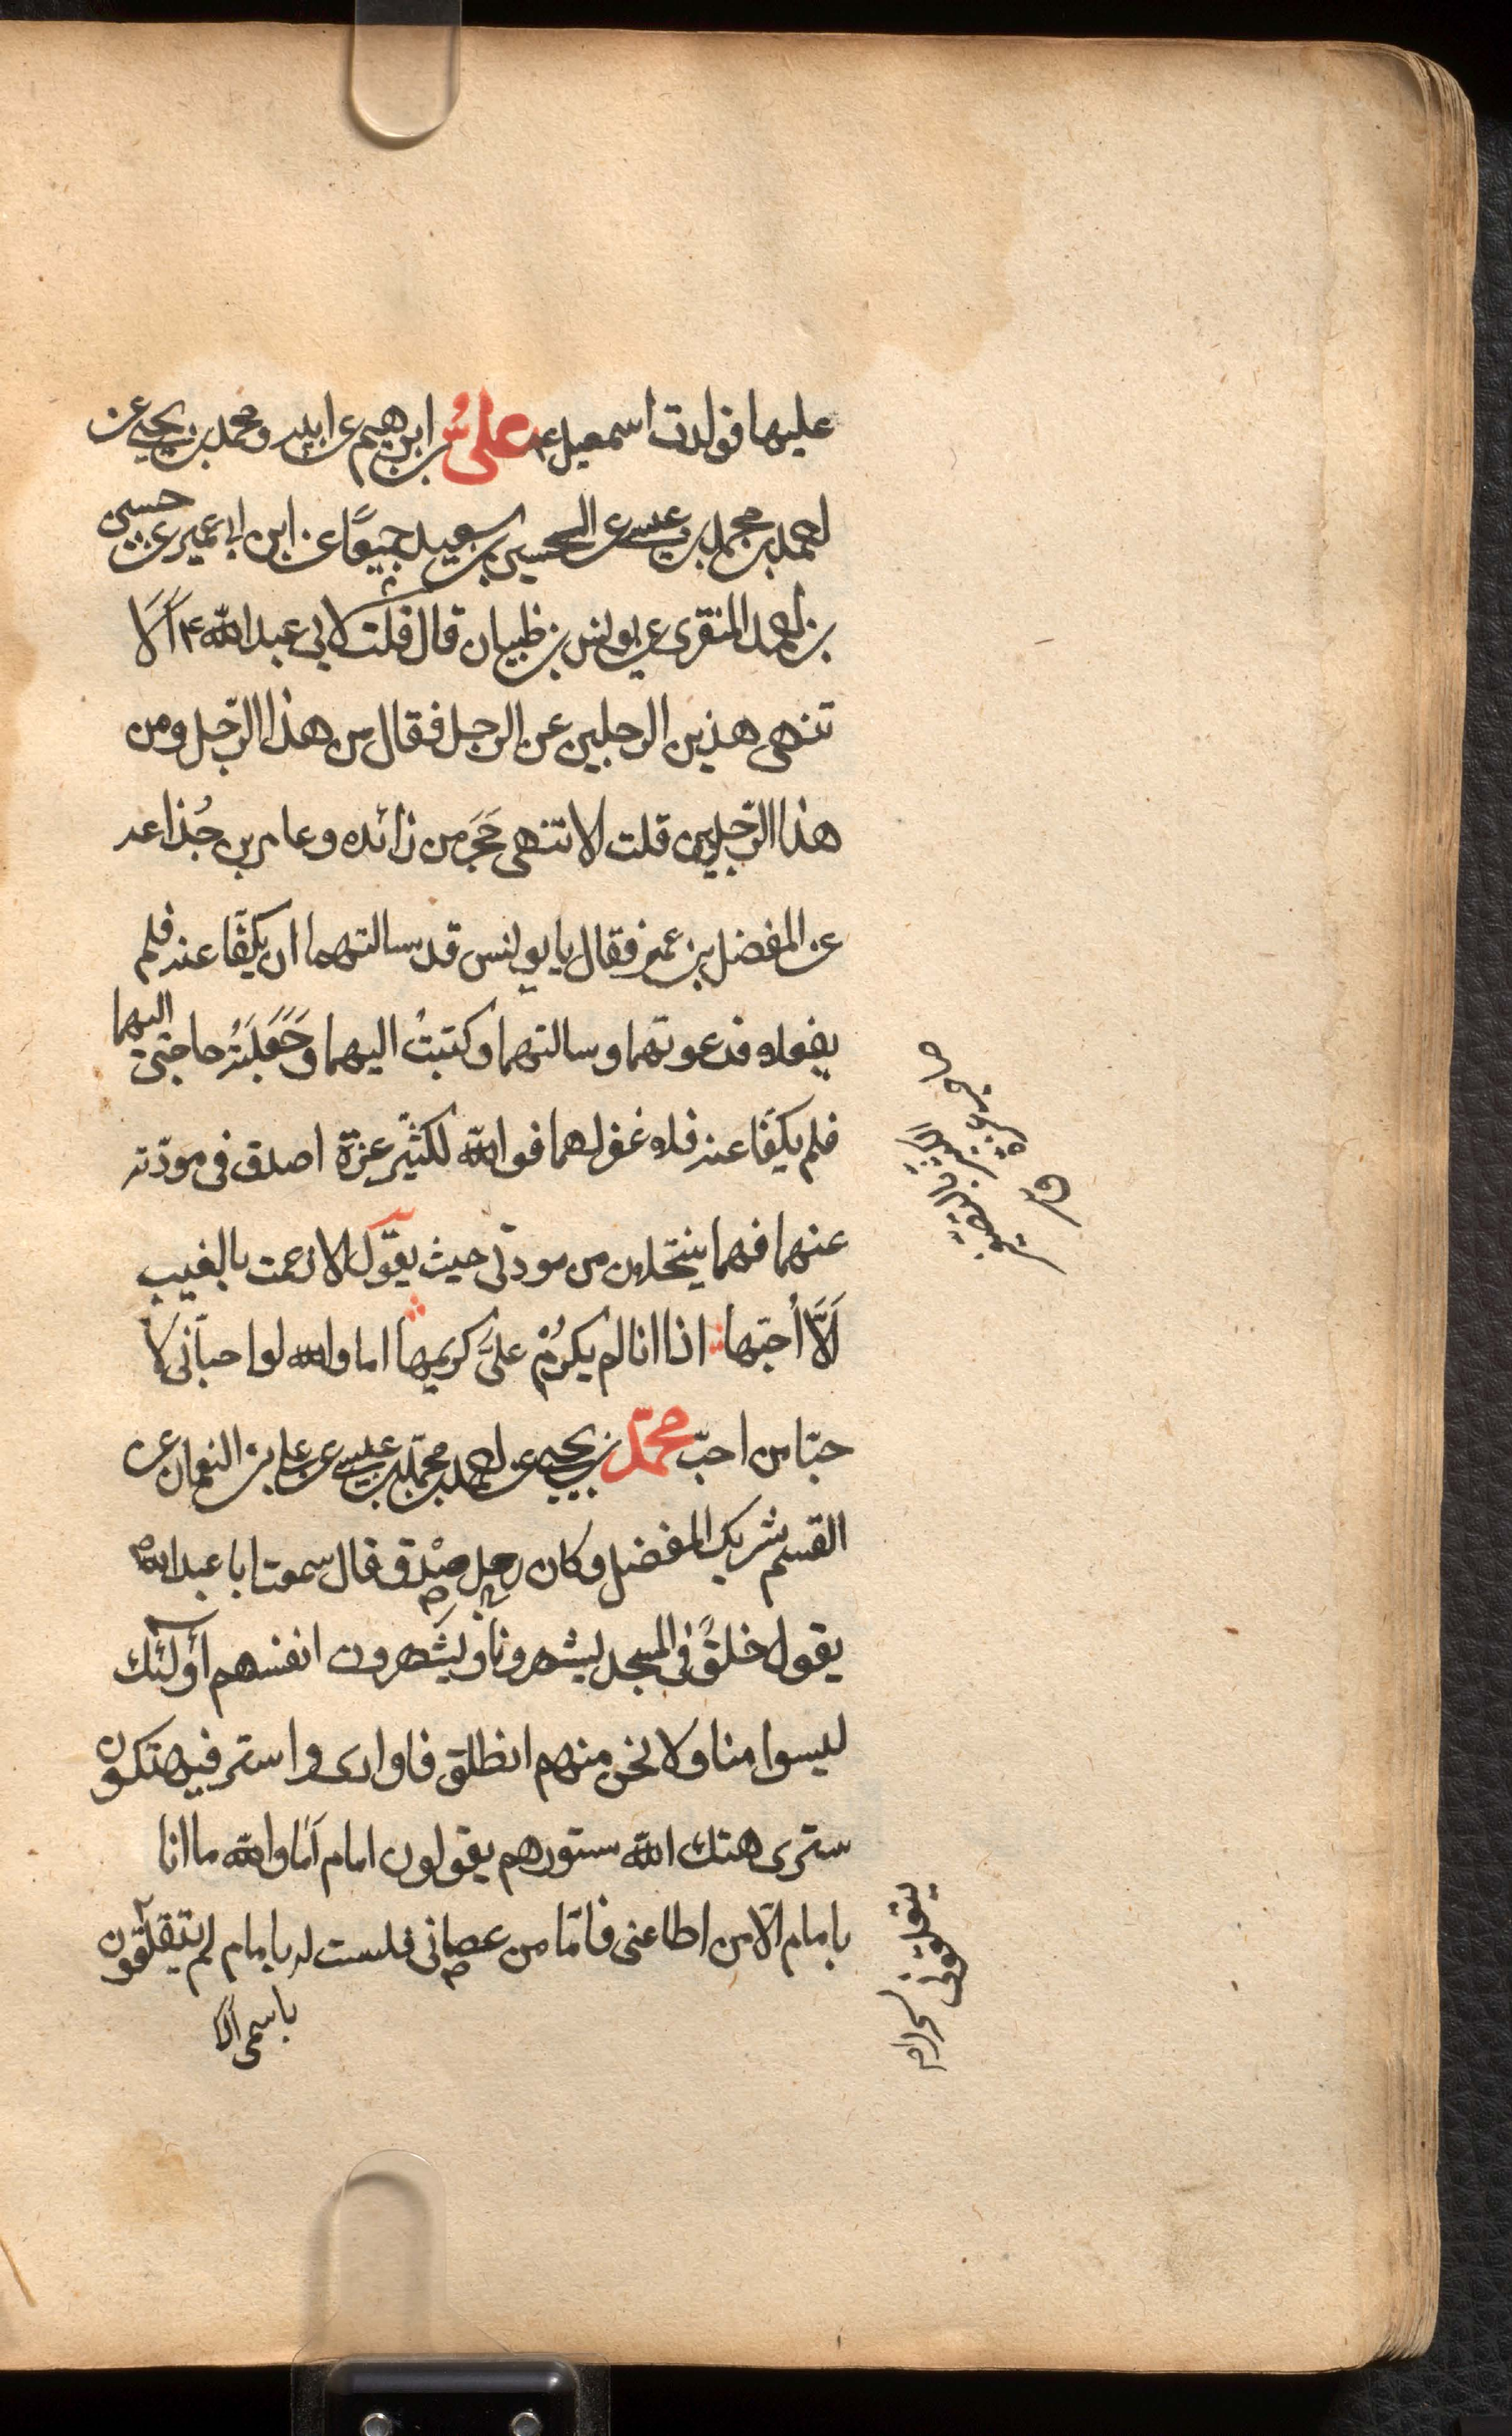 عليها فولدت اسمعيل ع علىُّ بن ابرهيم عن ابيه ومحمد بن يحيى عن
احمد بن محمد بن عيسى عن الحسين بن سعيد جميعًا عن ابن ابى عمير عن حسين
بن احمد المنقرى عن يونس بن ظبيان قال قلت لابى عبد الله ع اَلَا
تنهى هذين الرجلين عن الرجل فقال من هذا الرّجل ومن
هذا الرّجلين قلت الا تنهى حَجَر من زائده وعامر بن جُذاعه
عن المفضل بن عمر فقال يا يونس قد سالتهما ان يكفّا عنه فلم
يفعلا فدعوتهما وسالتهما وكتبتُ اليهما وجَعَلَتُه حاجتى اليهما
فلم يكفّا عنه فلا غفر لهما فوالله لكثيّر عزة اصدق فى مودّته
عنهما فهما ينتحلان من مودتى حيث يقوّل الا زعمت بالغيب
اَلَّا اُحبّها اذا انا لم يكرُمْ علىَّ كريمها اما والله لو احبّانى لا
حبّا من احبّ محمّد بن يحيى عن احمد بن محمّد بن عيسى عن على بن النعمان عن
القسم شريك المفضل وكان رجل صِدْق قال سمعت ابا عبد الله ع
يقول خلقٌ فى المسجد ليشهرونا ويشَهرون انفسهم أولَئك
ليسوا منا ولا نحن منهم انطلق فاوارى واستر فيهتكون
سترى هتك الله ستورهم يقولون امام اَمَا والله ما انا
بامام الّا من اطاعنى فامّا من عصانى فلست له بامام لم يتعلّقون
باسمى الا